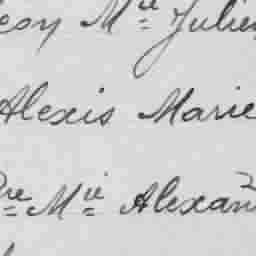 esy Mie Julie
Alexis Marie
re Mie Alexan